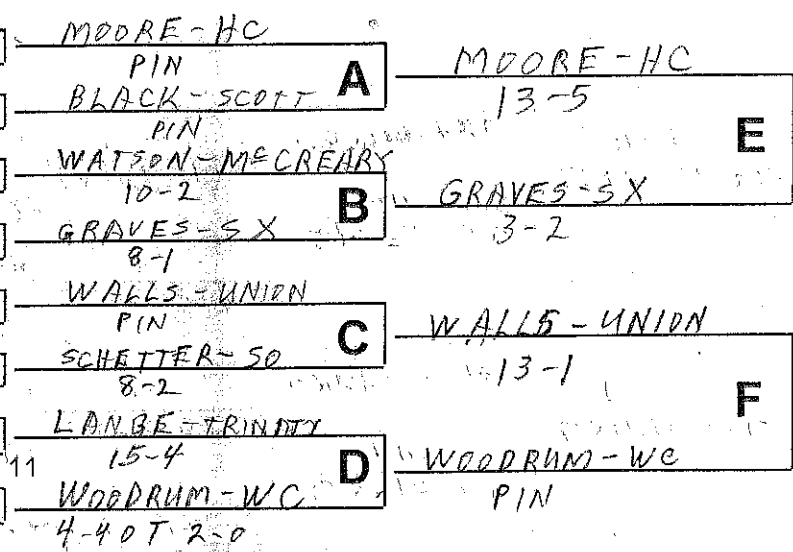 MOORE-HC
PIN
A
BLACK-SCOTT
PIN
WATSON-McCREARY
10-2
B
GRAVES-SX
8-1
WALLS-UNION
PIN
C
SCHETTER-SO
8-2
LANGE-TRINITY
11
15-4
D
WOODRUM-WC
4-4 OT 2-0
MOORE-HC
13-5
E
GRAVES-SX
3-2
WALLS-UNION
13-1
F
WOODRUM-WC
PIN